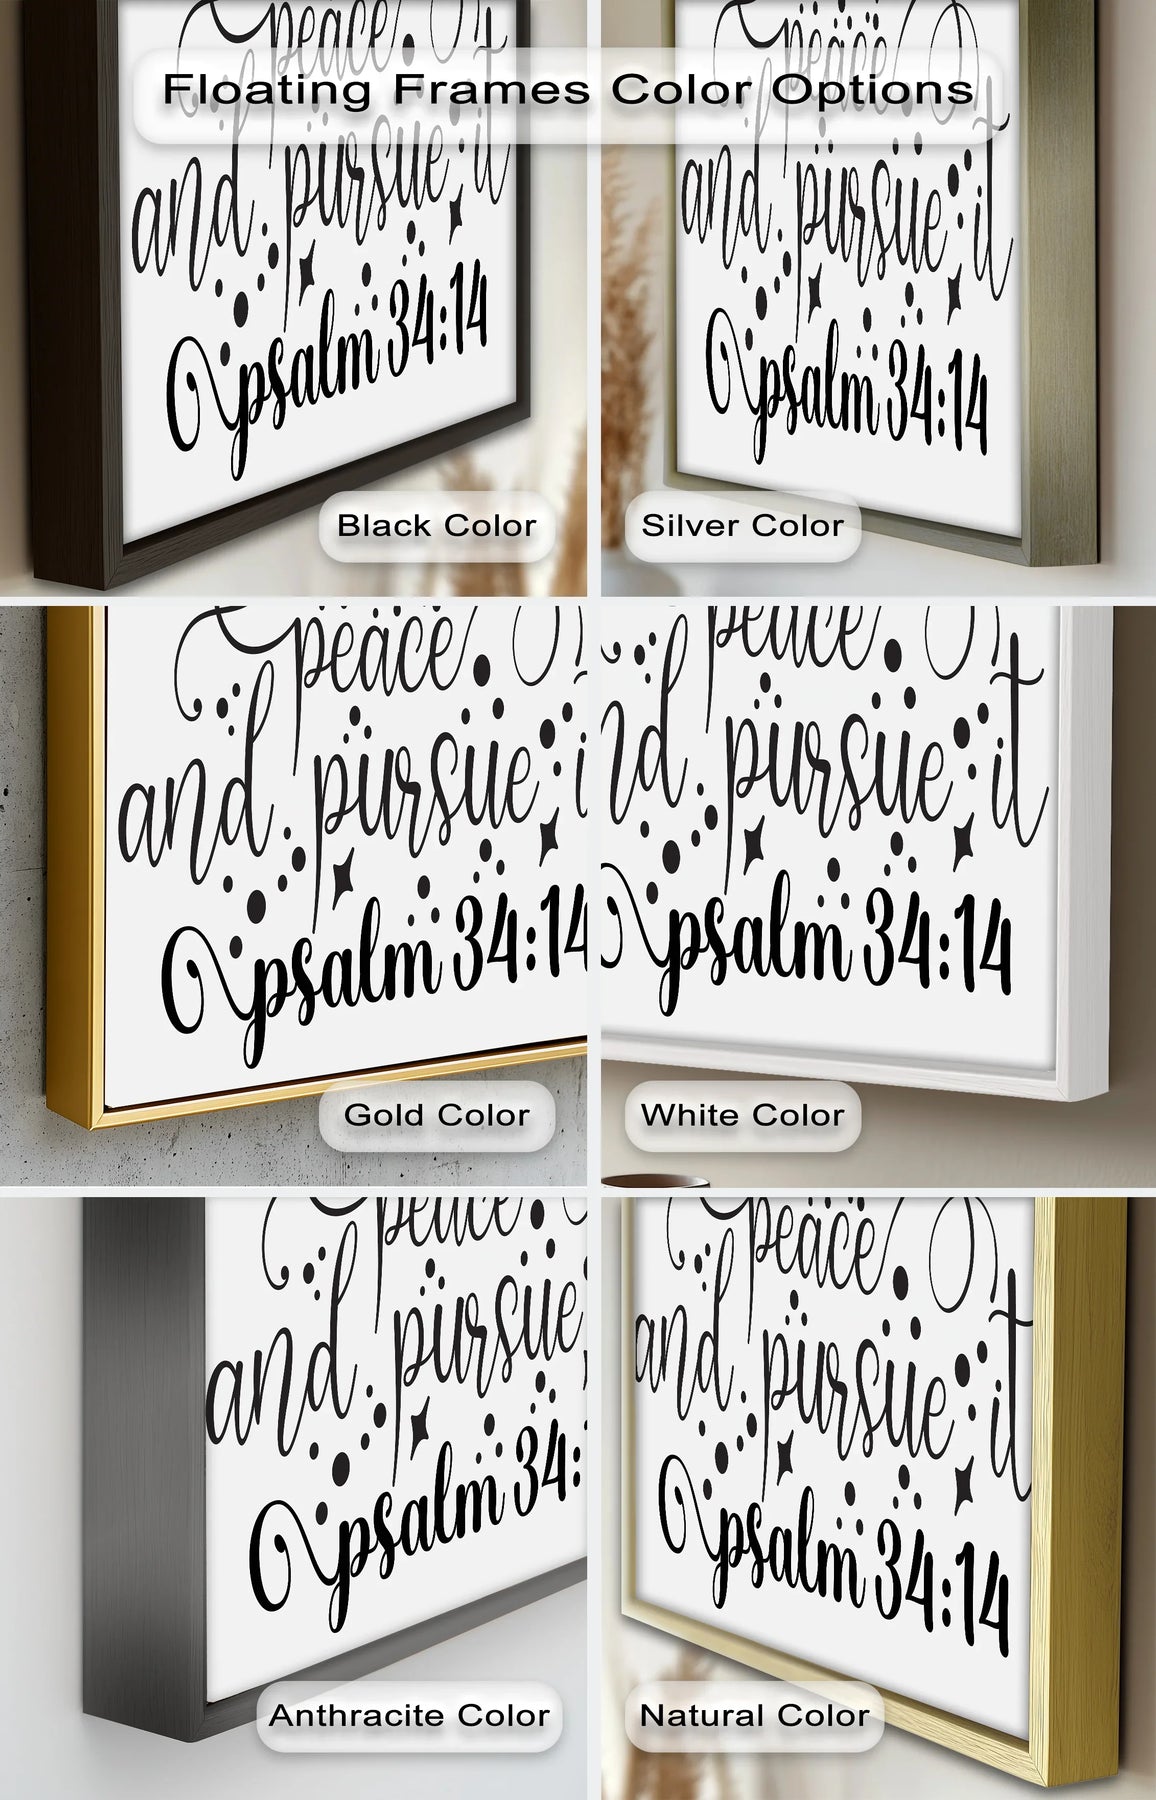 peace.
Floating Frames Color Options
and pursue it
psalm 34:14
Black Color
peace
and pursue it
psalm 34:14
Silver Color
peace
and pursue it
psalm 34:14
Gold Color
peace
and pursue it
psalm 34:14
White Color
peace
and pursue
psalm 34:
Anthracite Color
peace
and pursue it
psalm 34:14
Natural Color